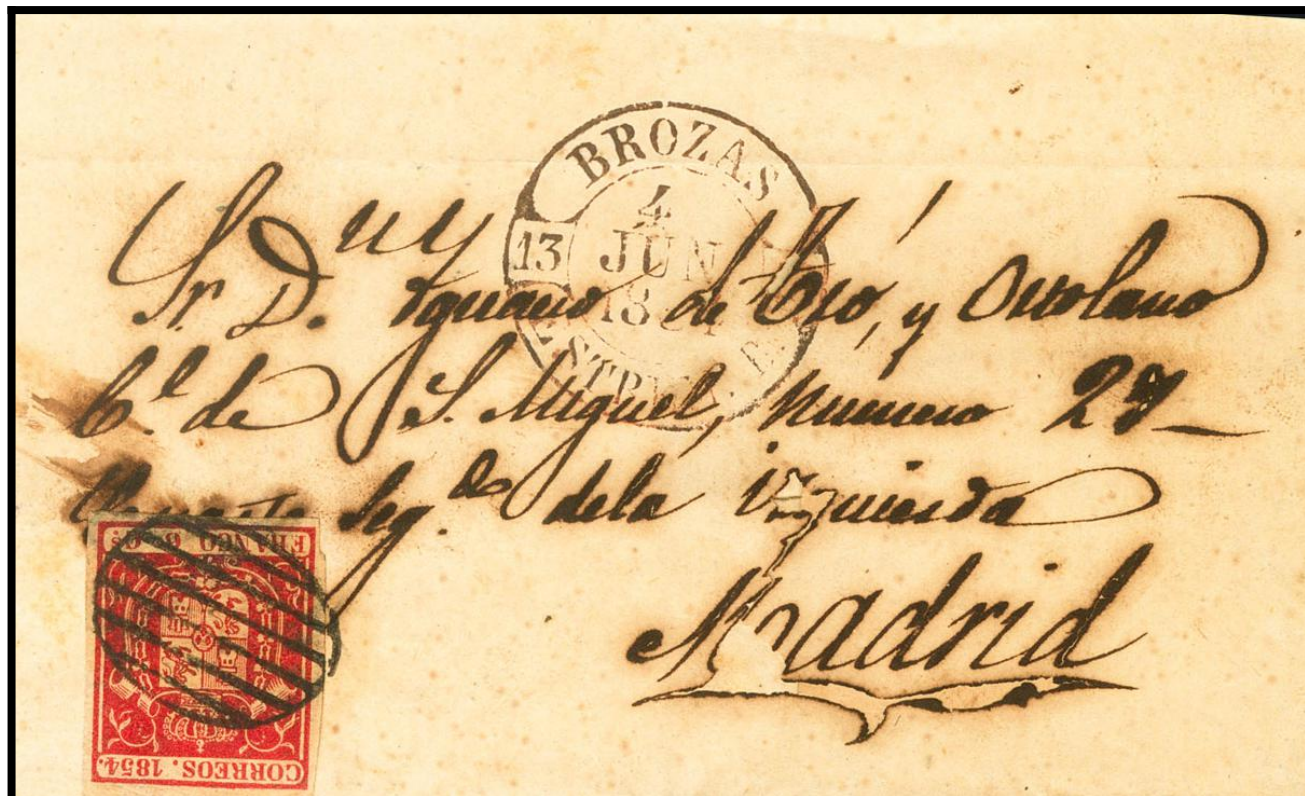 BROZAS
4
JUN
13
18
ESTREM
Sr. D.ⁿ Ygnacio de Tró, y Ortolano
C.ˡ de S. Miguel, Número 27
Cuarto Seg.ᵈᵒ de la izquierda
Madrid
FRANCO 6 Cˢ.
CORREOS. 1854.